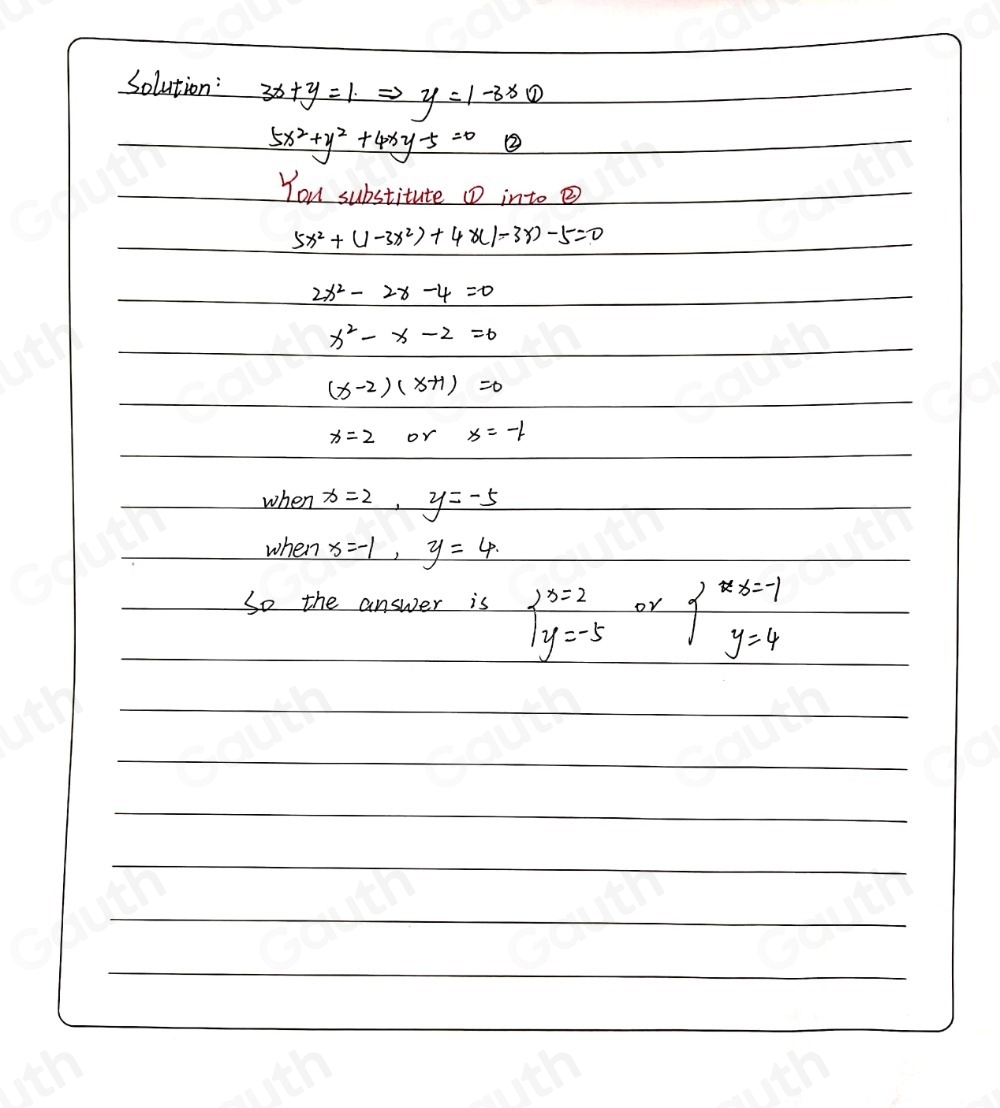 Solution: 3x+y=1. ⇒ y=1-3x ①
5x²+y²+4xy-5=0 ②
You substitute ① into ②
5x²+(1-3x²)+4x(1-3x)-5=0
2x²-2x-4=0
x²-x-2=0
(x-2)(x+1)=0
x=2 or x=-1
when x=2, y=-5
when x=-1, y=4.
So the answer is {x=2 or {x=-1
y=-5 y=4